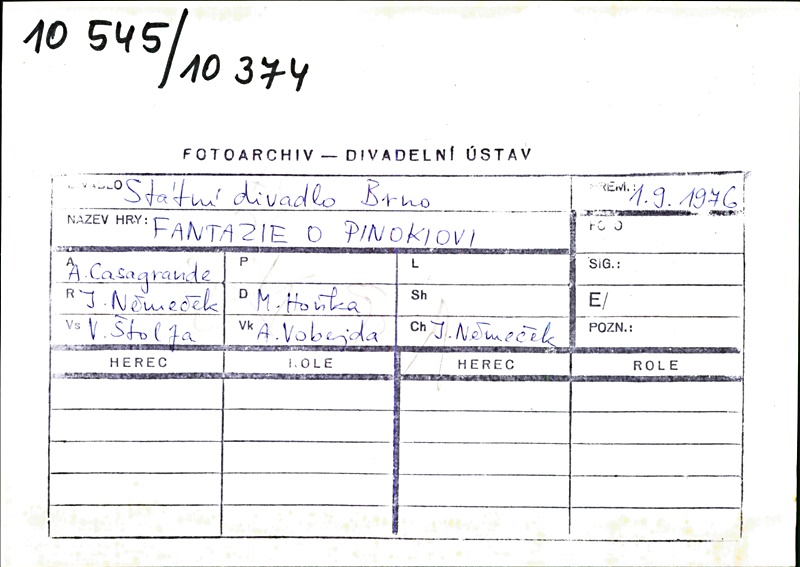 10 545/10 374
FOTOARCHIV — DIVADELNÍ ÚSTAV
DIVADLO Státní divadlo Brno PREM.: 1.9.1976
NÁZEV HRY: FANTAZIE O PINOKIOVI FOTO
A A. Casagrande P L SIG.:
R J. Němeček D M. Hoňka Sh E/
Vs V. Štolfa Vk A. Vobejda Ch J. Němeček POZN.:
HEREC ROLE HEREC ROLE